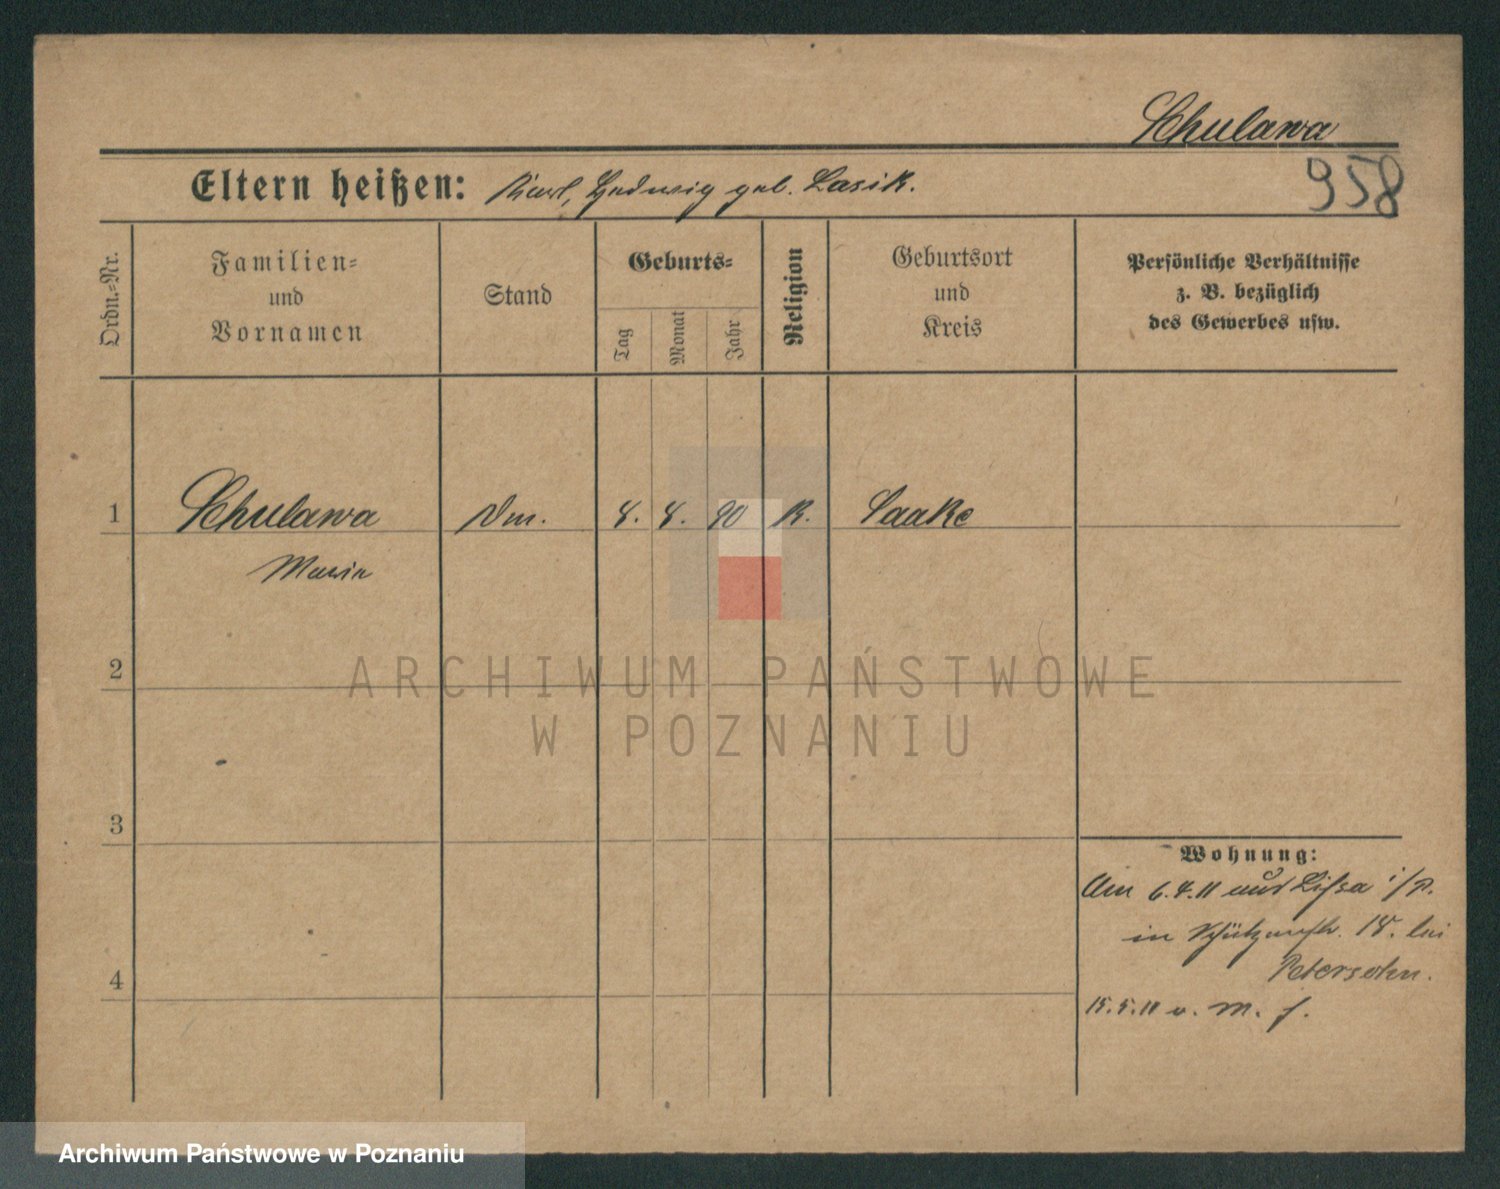 Schulawa
958
Eltern heißen: Karl, Hedwig geb. Lasik.
Ordn.-Nr.
Familien-
und
Vornamen
Stand
Geburts-
Tag
Monat
Jahr
Religion
Geburtsort
und
Kreis
Persönliche Verhältnisse
z. B. bezüglich
des Gewerbes usw.
1
Schulawa
Dm.
8. 4. 90
K.
Saake
Maria
2
3
4
Wohnung:
Am 6.4.11 aus Lissa i/P.
in Schützenstr. 15. bei
Petersohn.
15.5.11 v. M. f.
ARCHIWUM PAŃSTWOWE
W POZNANIU
Archiwum Państwowe w Poznaniu